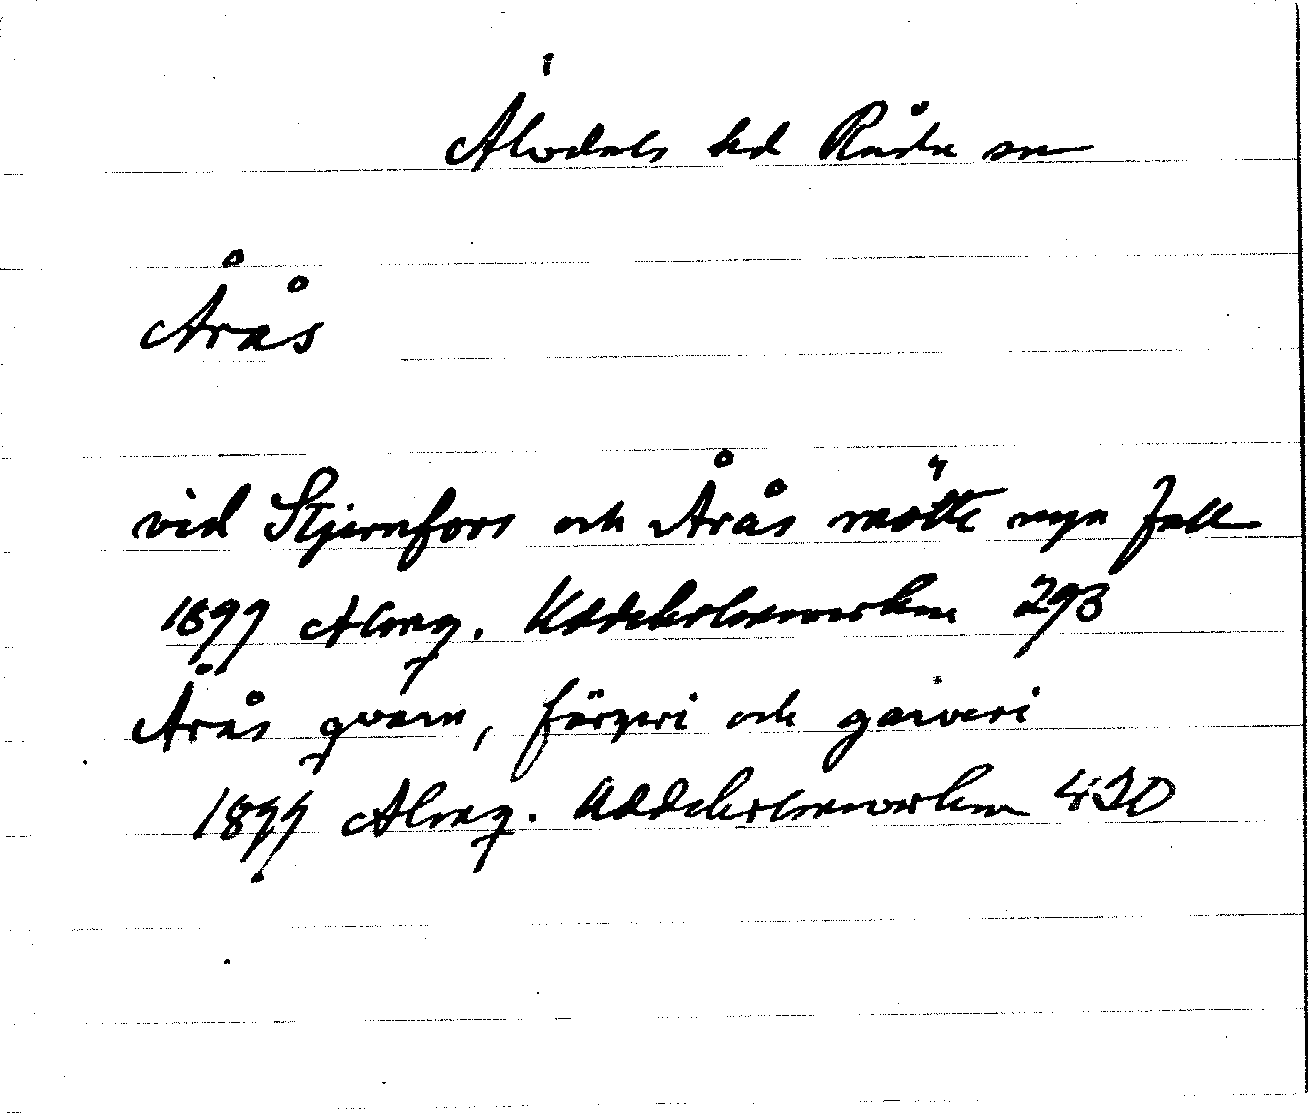 Älvdals hd Råda sn
Årås
vid Stjernfors och Årås mötte nya fall
1899 Almq. Uddeholmsverken 293
Årås qvarn, färgeri och garveri
1899 Almq. Uddeholmsverken 420